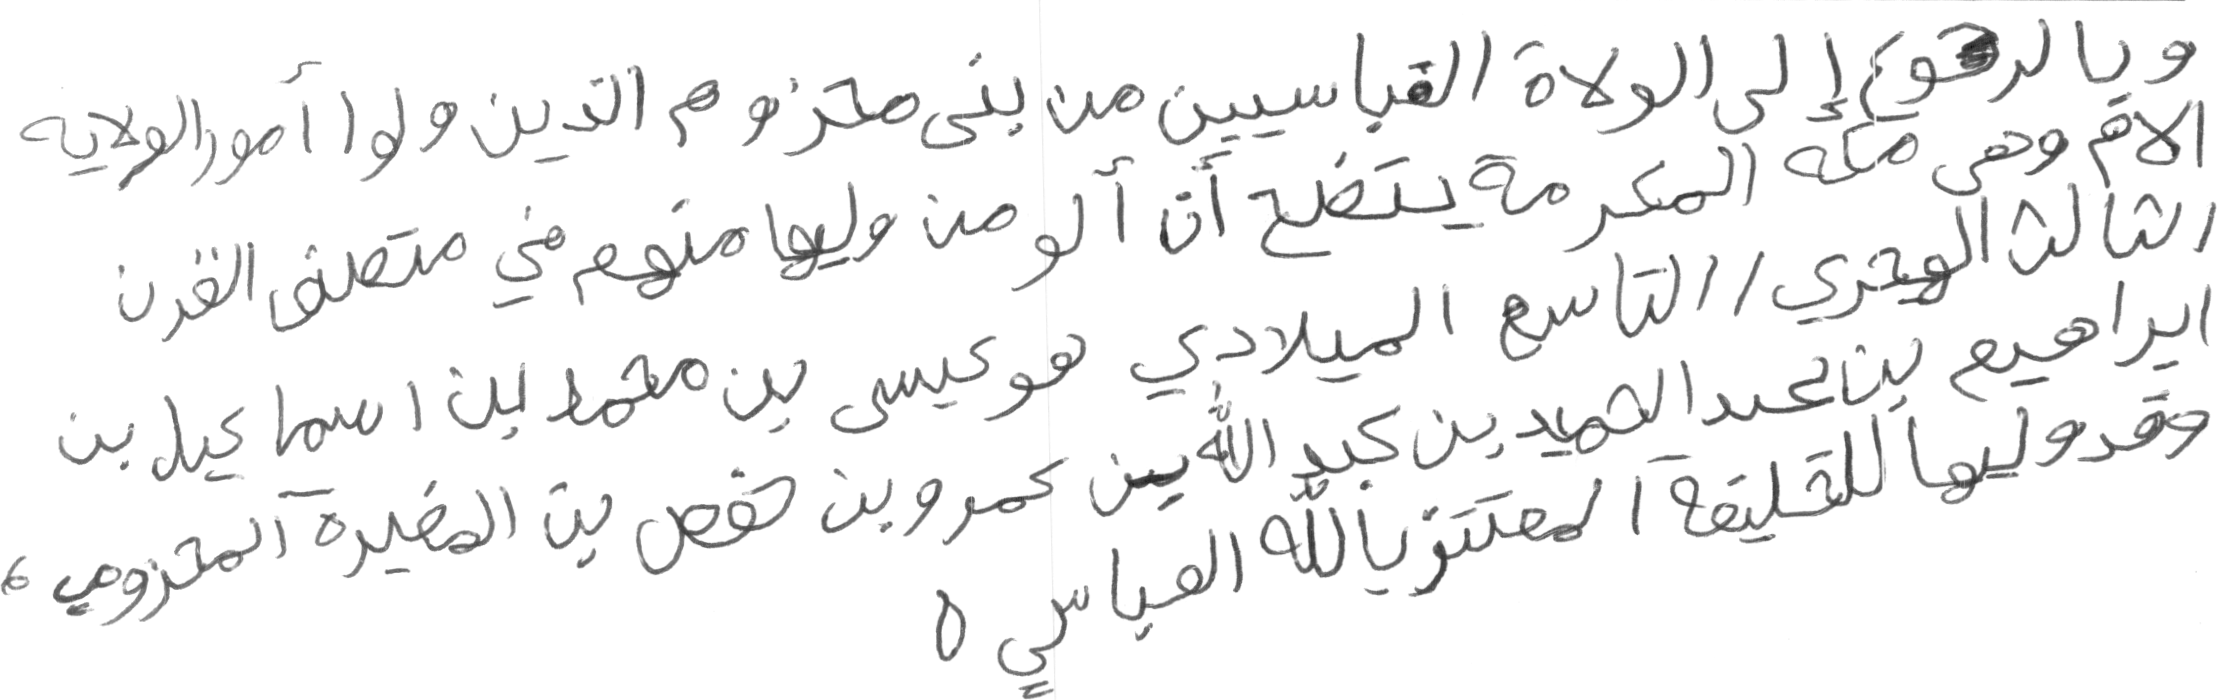 وبالرجوع إلى الولاة العباسيين من بنى مخزوم الذين ولوا أمور الولايه
الام وهى مكه المكرمة يتضح أن ألو من وليها منهم في منتصف القرن
الثالث الهجري / التاسع الميلادي هو عيسى بن محمد بن اسماعيل بن
ابراهيم بن عبد الحميد بن عبد الله بن عمرو بن حفص بن المغيرة المخزومي،
وقد وليها للخليفة المعتز بالله العباسي ه